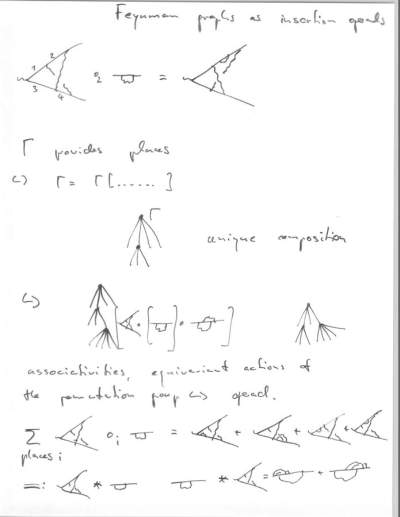 Feynman graphs as insertion operads
1 2
3 4
∘₂ =
Γ provides places
↪ Γ = Γ[......]
Γ
unique composition
↪
associativities, equivariant actions of
the permutation group ↪ operad.
∑ ∘ᵢ = + + +
places i
=: * * = +